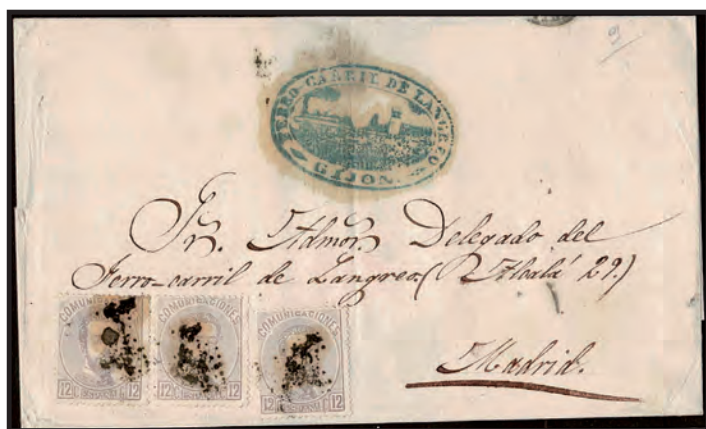 9
FERRO-CARRIL DE LANGREO
GIJON.
Sr. Admor. Delegado del
Ferro-carril de Langreo (Alcalá 29.)
Madrid.
COMUNICACIONES
12 12
COMUNICACIONES
12 12
COMUNICACIONES
12 12